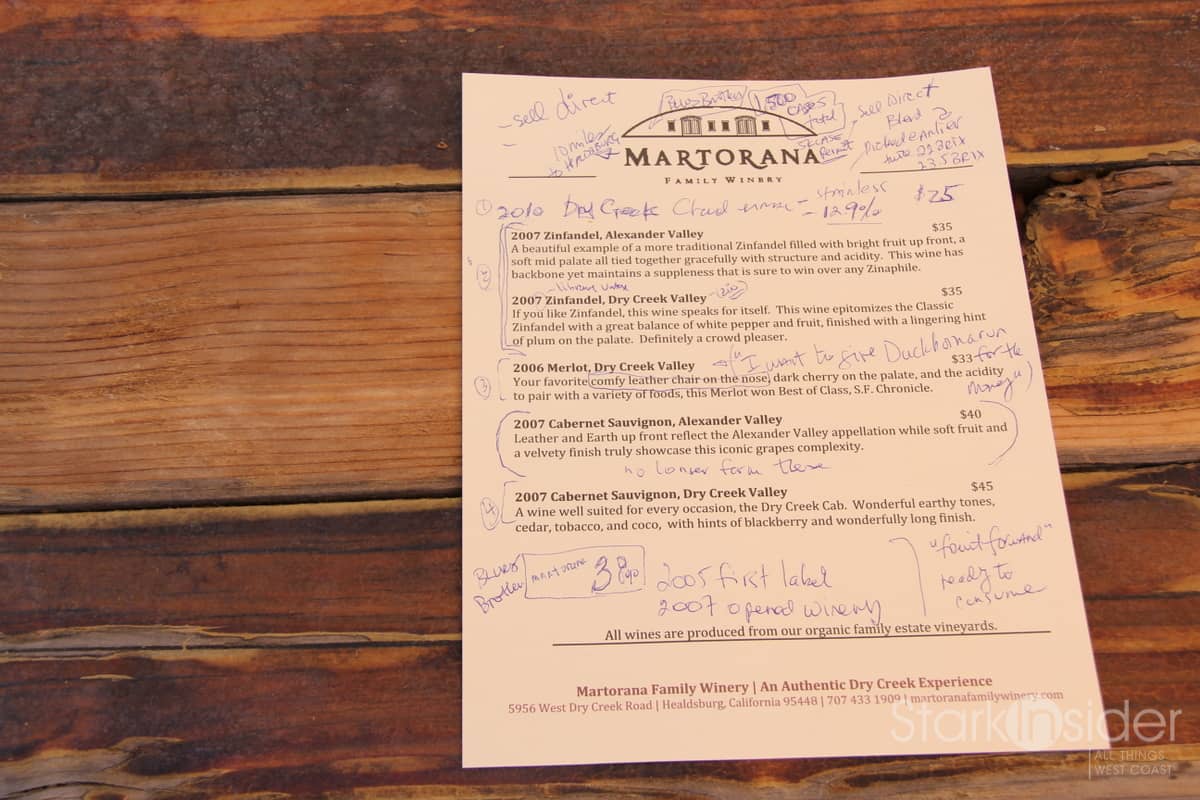 - sell direct
Blues Brothers
1,500
cases
total
5k case
permit
- sell direct
Blend 2
Picked earlier
22 Brix
23.5 Brix
10 miles
to Healdsburg
MARTORANA
FAMILY WINERY
① 2010 Dry Creek Chard - stainless
- 12.9% $25
2007 Zinfandel, Alexander Valley $35
A beautiful example of a more traditional Zinfandel filled with bright fruit up front, a
soft mid palate all tied together gracefully with structure and acidity. This wine has
backbone yet maintains a suppleness that is sure to win over any Zinaphile.
②
- library
2007 Zinfandel, Dry Creek Valley $35
If you like Zinfandel, this wine speaks for itself. This wine epitomizes the Classic
Zinfandel with a great balance of white pepper and fruit, finished with a lingering hint
of plum on the palate. Definitely a crowd pleaser.
2006 Merlot, Dry Creek Valley $33
"I want to give Duckhorn a run
for the
money"
③
Your favorite comfy leather chair on the nose, dark cherry on the palate, and the acidity
to pair with a variety of foods, this Merlot won Best of Class, S.F. Chronicle.
2007 Cabernet Sauvignon, Alexander Valley $40
Leather and Earth up front reflect the Alexander Valley appellation while soft fruit and
a velvety finish truly showcase this iconic grapes complexity.
no longer farm these
2007 Cabernet Sauvignon, Dry Creek Valley $45
④
A wine well suited for every occasion, the Dry Creek Cab. Wonderful earthy tones,
cedar, tobacco, and coco, with hints of blackberry and wonderfully long finish.
Blues
Brother
MARTORANA
2005 first label
2007 opened winery
"fruit forward"
ready to
consume
All wines are produced from our organic family estate vineyards.
Martorana Family Winery | An Authentic Dry Creek Experience
5956 West Dry Creek Road | Healdsburg, California 95448 | 707 433 1909 | martoranafamilywinery.com
StarkInsider
ALL THINGS
WEST COAST